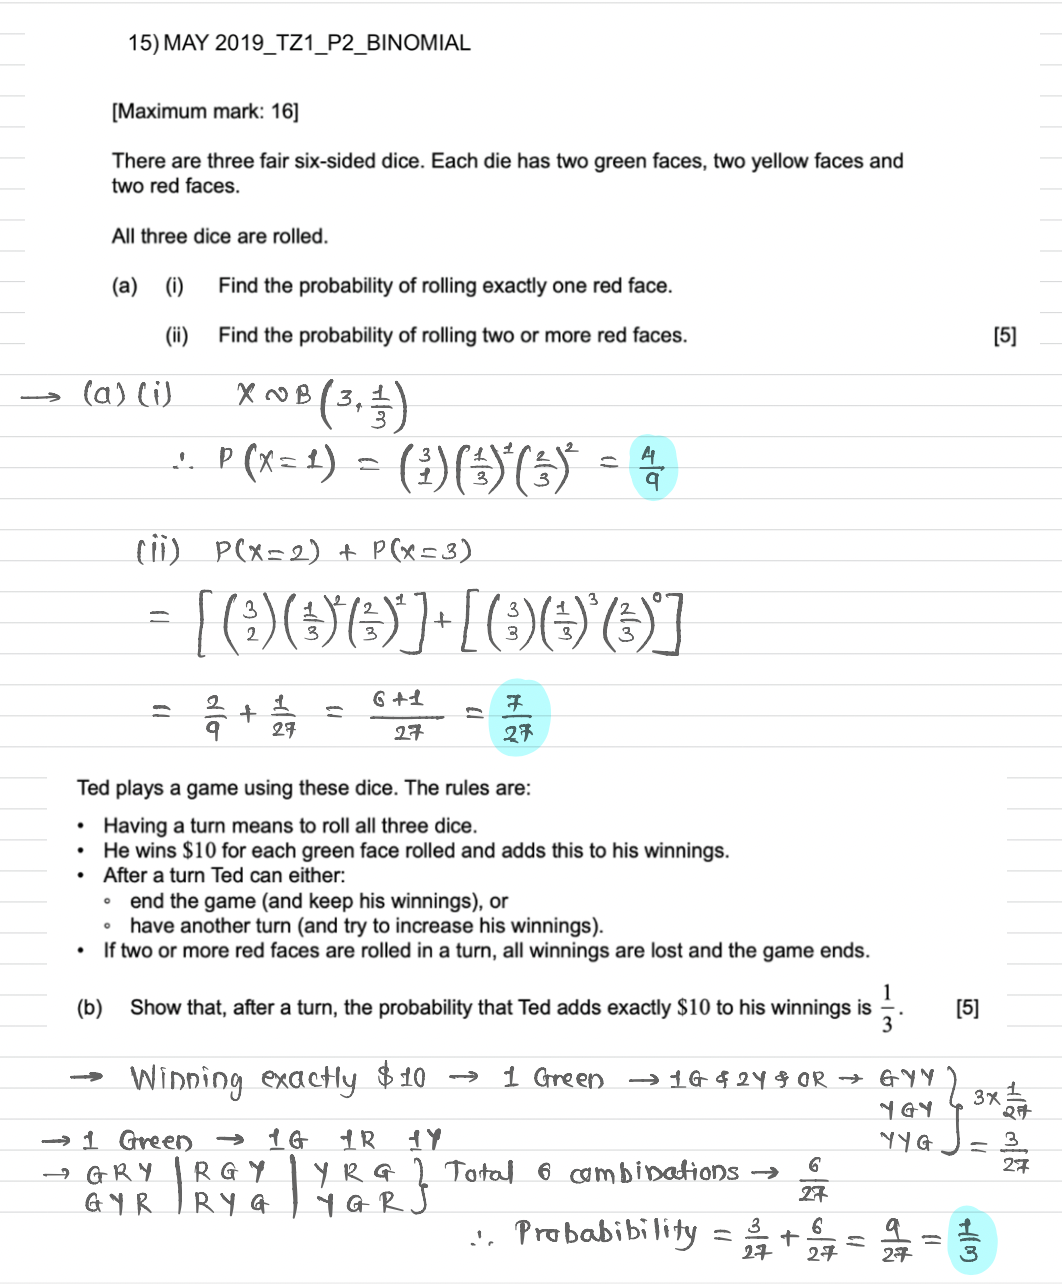 15) MAY 2019_TZ1_P2_BINOMIAL
[Maximum mark: 16]
There are three fair six-sided dice. Each die has two green faces, two yellow faces and
two red faces.
All three dice are rolled.
(a) (i) Find the probability of rolling exactly one red face.
(ii) Find the probability of rolling two or more red faces. [5]
→ (a) (i) X ~ B(3, 1/3)
∴ P(X=1) = (3 1)(1/3)^1(2/3)^2 = 4/9
(ii) P(X=2) + P(X=3)
= [(3 2)(1/3)^2(2/3)^1] + [(3 3)(1/3)^3(2/3)^0]
= 2/9 + 1/27 = 6+1/27 = 7/27
Ted plays a game using these dice. The rules are:
• Having a turn means to roll all three dice.
• He wins $10 for each green face rolled and adds this to his winnings.
• After a turn Ted can either:
◦ end the game (and keep his winnings), or
◦ have another turn (and try to increase his winnings).
• If two or more red faces are rolled in a turn, all winnings are lost and the game ends.
(b) Show that, after a turn, the probability that Ted adds exactly $10 to his winnings is 1/3. [5]
→ Winning exactly $10 → 1 Green → 1G & 2Y & 0R → GYY
YGY } 3× 1/27
→ 1 Green → 1G 1R 1Y YYG = 3/27
→ GRY | RGY | YRG } Total 6 combinations → 6/27
GYR | RYG | YGR
∴ Probabibility = 3/27 + 6/27 = 9/27 = 1/3